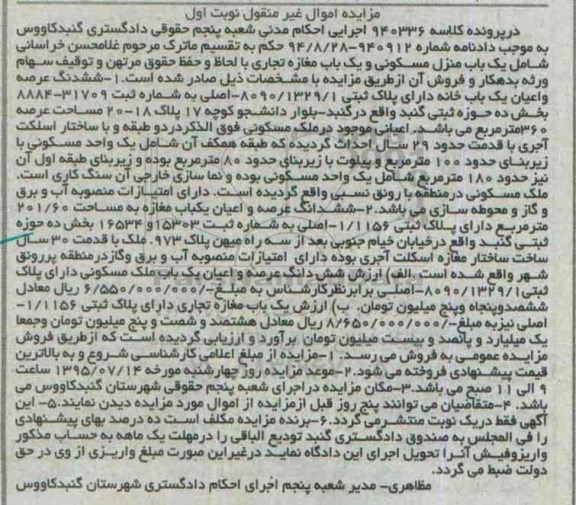 مزایده اموال غیر منقول نوبت اول
درپرونده کلاسه ۹۴۰۳۳۶ اجرایی احکام مدنی شعبه پنجم حقوقی دادگستری گنبدکاووس
به موجب دادنامه شماره ۹۴۰۹۱۲-۹۴/۸/۲۸ حکم به تقسیم ماترک مرحوم غلامحسن خراسانی
شامل یک باب منزل مسکونی و یک باب مغازه تجاری با لحاظ و حفظ حقوق مرتهن و توقیف سهام
ورثه بدهکار و فروش آن ازطریق مزایده با مشخصات ذیل صادر شده است.۱-ششدنگ عرصه
واعیان یک باب خانه دارای پلاک ثبتی ۸۰۹۰/۱۳۲۹/۱-اصلی به شماره ثبت ۳۱۷۰۹-۸۸۸۴
بخش ده حوزه ثبتی گنبد واقع درگنبد-بلوار دانشجو کوچه ۱۷ پلاک ۱۸-۲۰ مساحت عرصه
۳۶۰مترمربع می باشد. اعیانی موجود درملک مسکونی فوق الذکردردو طبقه و با ساختار اسلکت
آجری با قدمت حدود ۲۹ سال احداث گردیده که طبقه همکف آن شامل یک واحد مسکونی با
زیربنای حدود ۱۰۰ مترمربع و پیلوت با زیربنای حدود ۸۰ مترمربع بوده و زیربنای طبقه اول آن
نیز حدود ۱۸۰ مترمربع شامل یک واحد مسکونی بوده و نما سازی خارجی آن سنگ کاری است.
ملک مسکونی درمنطقه با رونق نسبی واقع گردیده است. دارای امتیازات منصوبه آب و برق
و گاز و محوطه سازی می باشد.۲-ششدانگ عرصه و اعیان یکباب مغازه به مساحت ۲۰۱/۶۰
مترمربع دارای پلاک ثبتی ۱/۱۱۵۶-اصلی به شماره ثبت ۱۵۳۰۳و ۱۶۵۳۴ بخش ده حوزه
ثبتی گنبد واقع درخیابان خیام جنوبی بعد از سه راه میهن پلاک ۹۷۳. ملک با قدمت ۳۰ سال
ساخت ساختار مغازه اسکلت آجری بوده دارای امتیازات منصوبه آب و برق وگازدرمنطقه پررونق
شهر واقع شده است .الف) ارزش شش دانگ عرصه و اعیان یک باب ملک مسکونی دارای پلاک
ثبتی۸۰۹۰/۱۳۲۹/۱-اصلی برابرنظرکارشناس به مبلغ-/۶/۵۵۰/۰۰۰/۰۰۰ ریال معادل
ششصدوپنجاه وپنج میلیون تومان. ب) ارزش یک باب مغازه تجاری دارای پلاک ثبتی ۱/۱۱۵۶-
اصلی نیزبه مبلغ-/۸/۶۵۰/۰۰۰/۰۰۰ ریال معادل هشتصد و شصت و پنج میلیون تومان وجمعا
یک میلیارد و پانصد و بیست میلیون تومان برآورد و ارزیابی گردیده است که ازطریق فروش
مزایده عمومی به فروش می رسد. ۱-مزایده از مبلغ اعلامی کارشناسی شروع و به بالاترین
قیمت پیشنهادی فروخته می شود.۲-موعد مزایده روز چهارشنبه مورخه ۱۳۹۵/۰۷/۱۴ ساعت
۹ الی ۱۱ صبح می باشد.۳-مکان مزایده دراجرای شعبه پنجم حقوقی شهرستان گنبدکاووس می
باشد. ۴-متقاضیان می توانند پنج روز قبل ازمزایده از اموال مورد مزایده دیدن نمایند.۵- این
آگهی فقط دریک نوبت منتشرمی گردد.۶-برنده مزایده مکلف است ده درصد بهای پیشنهادی
را فی المجلس به صندوق دادگستری گنبد تودیع الباقی را درمهلت یک ماهه به حساب مذکور
واریزوفیش آنرا تحویل اجرای این دادگاه نماید درغیراین صورت مبلغ واریزی از وی در حق
دولت ضبط می گردد.
مظاهری- مدیر شعبه پنجم اجرای احکام دادگستری شهرستان گنبدکاووس